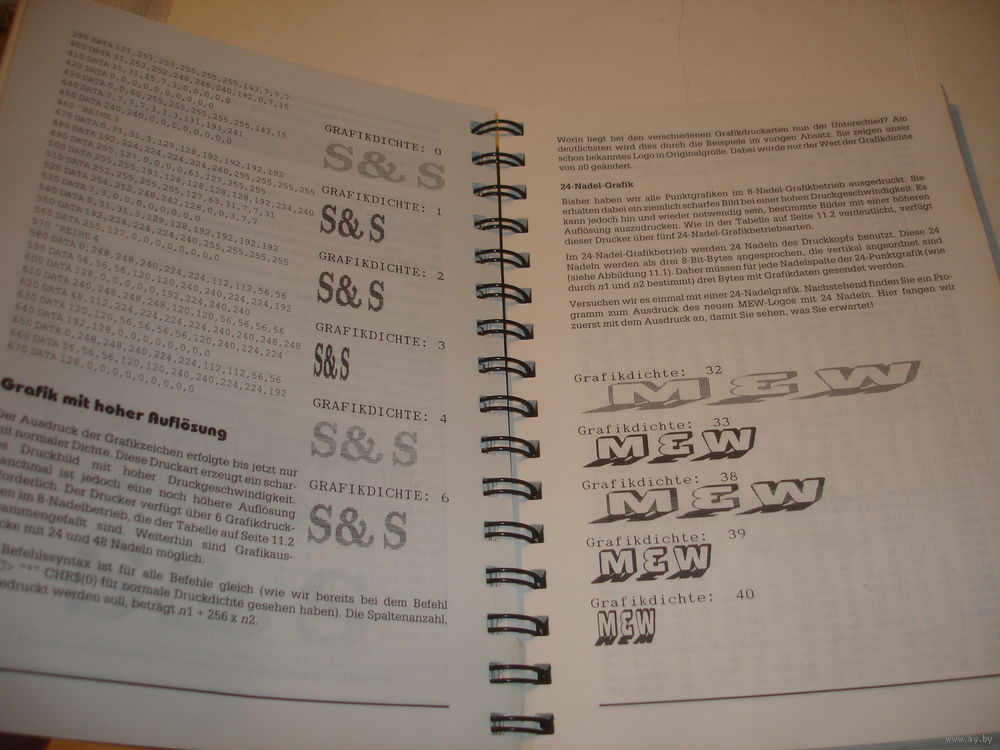 390 DATA 121,253,253,255,255,255,143,7,7,7
400 DATA 31,253,252,248,248,240,192,0,7,15
410 DATA 31,31,15,7,3,0,0,0,0,0
420 DATA 0,0,0,0,0,0,0,0,0,0
430 DATA 0,0,60,255,255,255,255,255,143,15
440 DATA 7,7,7,7,3,3,3,131,193,241
450 DATA 240,240,0,0,0,0,0,0,0,0
460 'REIHE 3
470 DATA 0,31,31,3,129,128,192,192,192,192
480 DATA 192,224,224,224,224,240,255,255,255,255
490 DATA 255,127,0,0,0,0,63,127,255,255
500 DATA 255,255,193,128,128,128,128,192,224,240
510 DATA 252,255,255,255,255,127,63,31,7,7,31
520 DATA 254,252,248,242,128,0,0,3,7,7
530 DATA 7,3,0,0,0,0,0,0,0,0
540 DATA 0,31,31,3,129,128,192,192,192,192
550 DATA 192,224,224,224,224,240,255,255,255,255
560 DATA 255,127,0,0,0,0,0,0,0,0
570 'REIHE 4
580 DATA 0,248,248,240,224,224,112,112,56,56
590 DATA 56,56,56,120,120,240,240,224,224,192
600 DATA 128,0,0,0,0,0,192,224,240,240
610 DATA 240,248,248,248,120,120,56,56,56,56
620 DATA 48,112,224,224,224,224,240,240,248,248
630 DATA 120,120,120,56,56,56,56,120,240,224,224
640 DATA 192,192,128,0,0,0,0,0,0,0
650 DATA 0,248,248,240,224,224,112,112,56,56
660 DATA 56,56,56,120,120,240,240,224,224,192
670 DATA 128,0,0,0,0,0,0,0,0,0
GRAFIKDICHTE: 0
S&S
GRAFIKDICHTE: 1
S&S
GRAFIKDICHTE: 2
S&S
GRAFIKDICHTE: 3
S&S
GRAFIKDICHTE: 4
S&S
GRAFIKDICHTE: 6
S&S
Grafik mit hoher Auflösung
Der Ausdruck der Grafikzeichen erfolgte bis jetzt nur
mit normaler Dichte. Diese Druckart erzeugt ein schar-
Druckbild mit hoher Druckgeschwindigkeit.
anchmal ist jedoch eine noch höhere Auflösung
forderlich. Der Drucker verfügt über 6 Grafikdruck-
en im 8-Nadelbetrieb, die der Tabelle auf Seite 11.2
ammengefaßt sind. Weiterhin sind Grafikaus-
cke mit 24 und 48 Nadeln möglich.
Befehlssyntax ist für alle Befehle gleich (wie wir bereits bei dem Befehl
C> "*" CHR$(0) für normale Druckdichte gesehen haben). Die Spaltenanzahl,
edruckt werden soll, beträgt n1 + 256 x n2.
Worin liegt bei den verschiedenen Grafikdruckarten nun der Unterschied? Am
deutlichsten wird dies durch die Beispiele im vorigen Absatz. Sie zeigen unser
schon bekanntes Logo in Originalgröße. Dabei wurde nur der Wert der Grafikdichte
von n0 geändert.
24-Nadel-Grafik
Bisher haben wir alle Punktgrafiken im 8-Nadel-Grafikbetrieb ausgedruckt. Sie
erhalten dabei ein ziemlich scharfes Bild bei einer hohen Druckgeschwindigkeit. Es
kann jedoch hin und wieder notwendig sein, bestimmte Bilder mit einer höheren
Auflösung auszudrucken. Wie in der Tabelle auf Seite 11.2 verdeutlicht, verfügt
dieser Drucker über fünf 24-Nadel-Grafikbetriebsarten.
Im 24-Nadel-Grafikbetrieb werden 24 Nadeln des Druckkopfs benutzt. Diese 24
Nadeln werden als drei 8-Bit-Bytes angesprochen, die vertikal angeordnet sind
(siehe Abbildung 11.1). Daher müssen für jede Nadelspalte der 24-Punktgrafik (wie
durch n1 und n2 bestimmt) drei Bytes mit Grafikdaten gesendet werden.
Versuchen wir es einmal mit einer 24-Nadelgrafik. Nachstehend finden Sie ein Pro-
gramm zum Ausdruck des neuen MEW-Logos mit 24 Nadeln. Hier fangen wir
zuerst mit dem Ausdruck an, damit Sie sehen, was Sie erwartet!
Grafikdichte: 32
MEW
Grafikdichte: 33
MEW
Grafikdichte: 38
MEW
Grafikdichte: 39
MEW
Grafikdichte: 40
MEW
www.ay.by